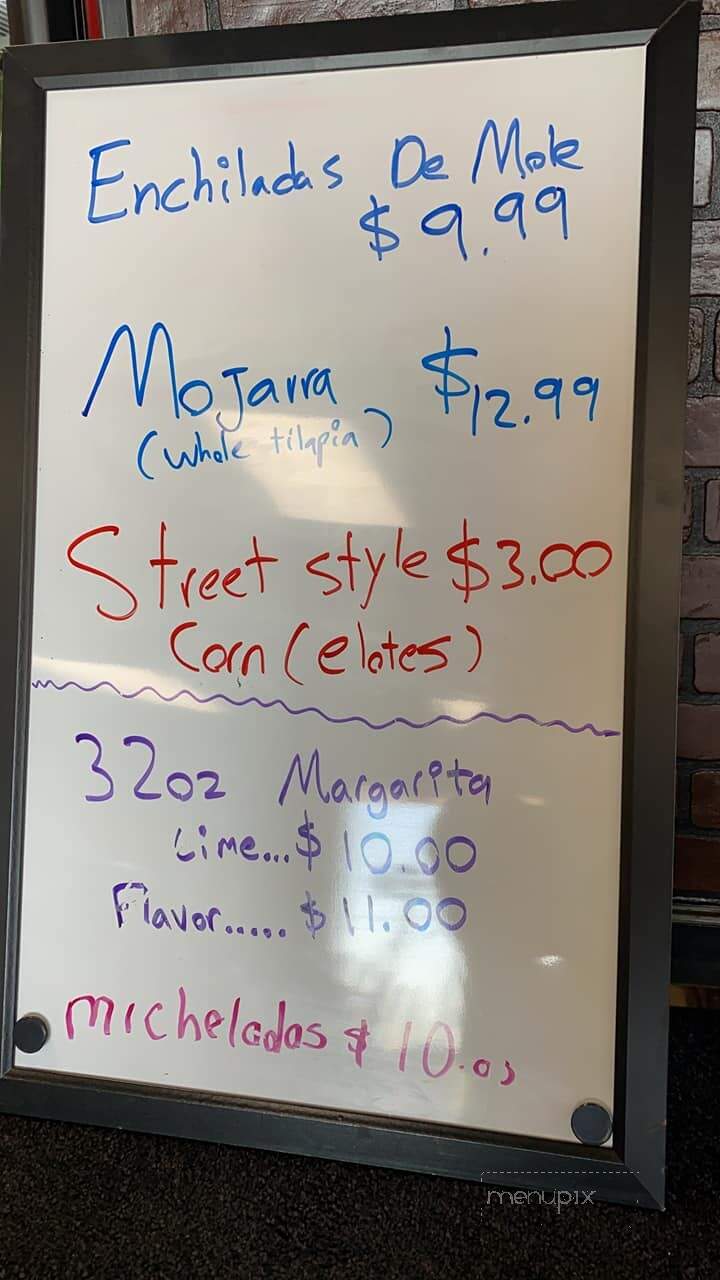 Enchiladas De Mole
$9.99
Mojarra $12.99
(whole tilapia)
Street style $3.00
Corn (elotes)
32oz Margarita
Lime...$10.00
Flavor.....$11.00
micheladas $10.00
menupix